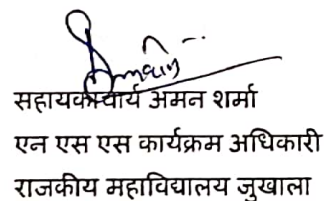 सहायकाचार्य अमन शर्मा
एन एस एस कार्यक्रम अधिकारी
राजकीय महाविद्यालय जुखाला